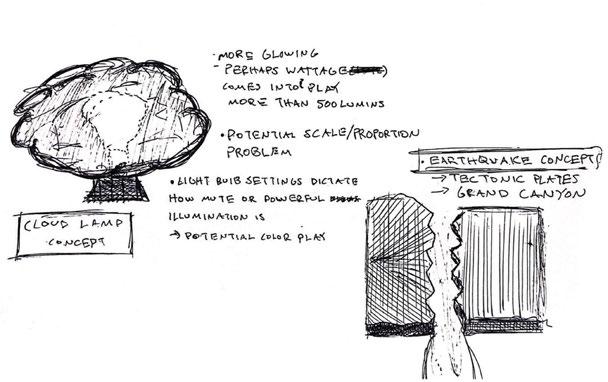 • MORE GLOWING
- PERHAPS WATTAGE
COMES INTO PLAY
MORE THAN 500 LUMINS
• POTENTIAL SCALE/PROPORTION
PROBLEM
• LIGHT BULB SETTINGS DICTATE
HOW MUTE OR POWERFUL
ILLUMINATION IS
→ POTENTIAL COLOR PLAY
CLOUD LAMP
CONCEPT
• EARTHQUAKE CONCEPT
→ TECTONIC PLATES
→ GRAND CANYON